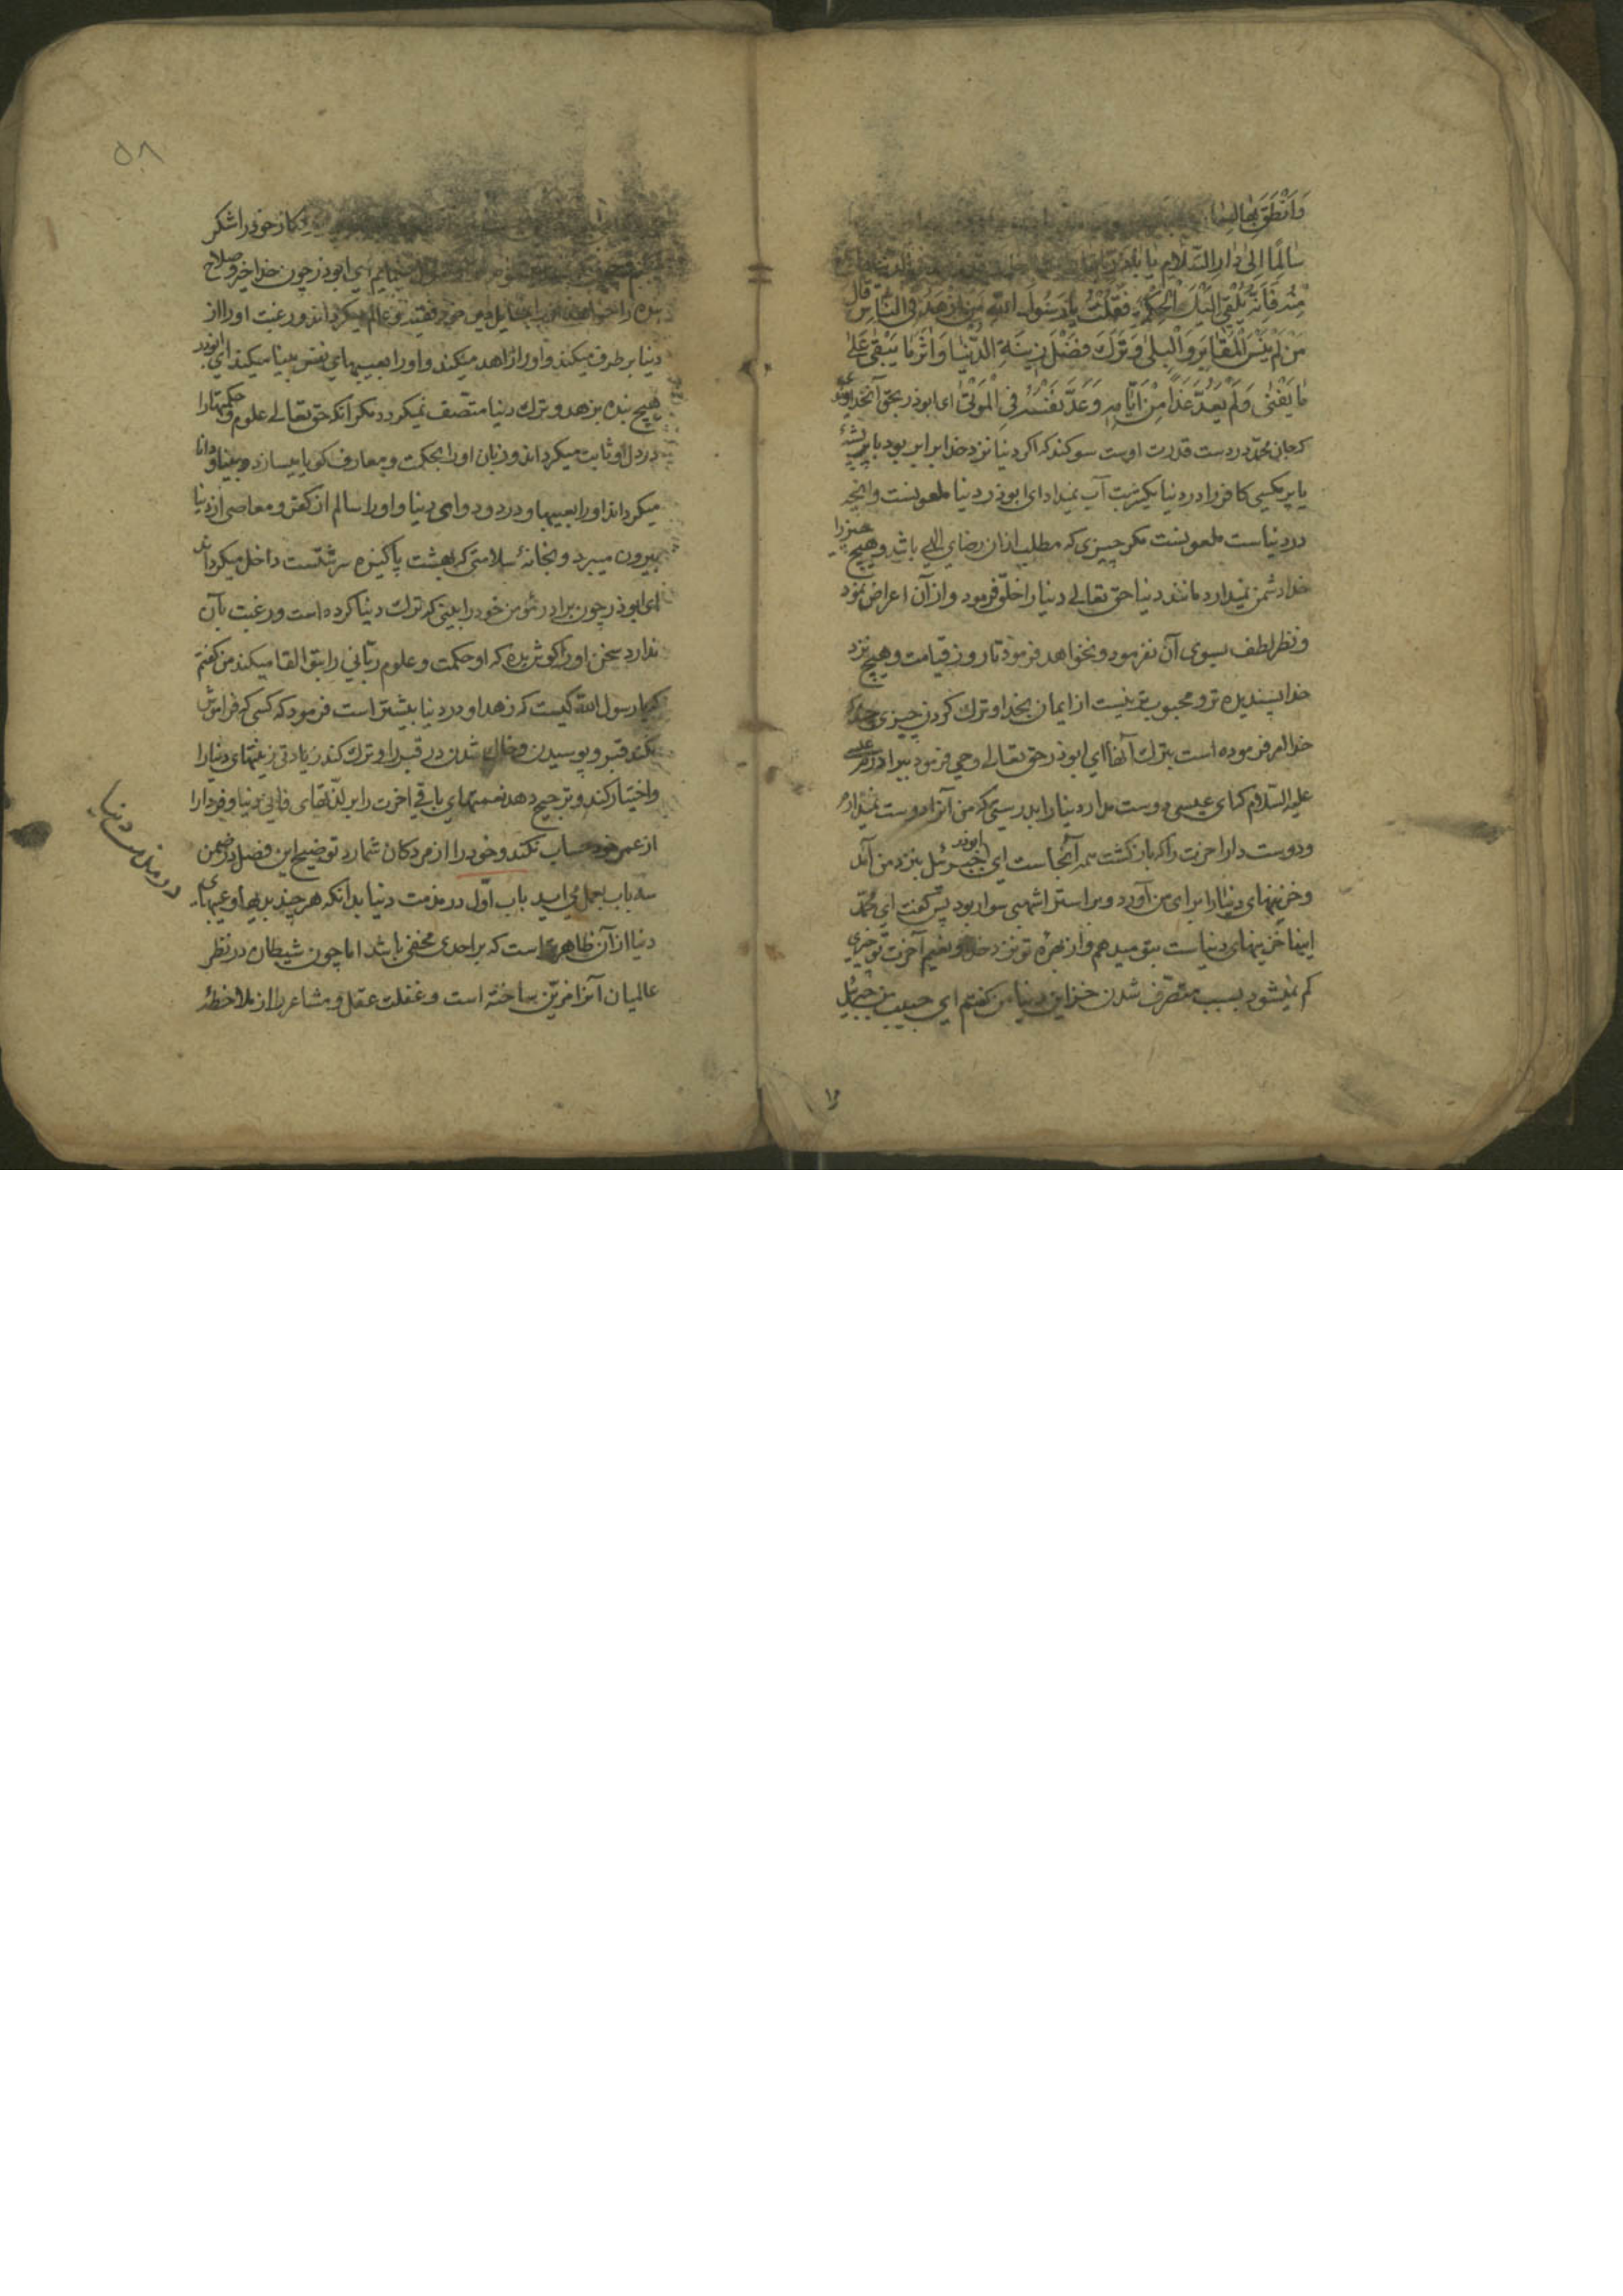 وَاَنْطَقَ بِهَا لِسَانَهُ
سَالِمًا اِلٰى دَارِ السَّلَامِ يَا بَاذَرٍّ
مِنْهُ فَاِنَّهُ يُلْقِي اِلَيْكَ الْحِكْمَةَ فَقُلْتُ يَا رَسُولَ اللهِ مَنْ اَزْهَدُ النَّاسِ قَالَ
مَنْ لَمْ يَنْسَ الْمَقَابِرَ وَالْبِلٰى وَتَرَكَ فَضْلَ زِينَةِ الدُّنْيَا وَاٰثَرَ مَا يَبْقٰى عَلٰى
مَا يَفْنٰى وَلَمْ يَعُدَّ غَدًا مِنْ اَيَّامِهِ وَعَدَّ نَفْسَهُ فِي الْمَوْتٰى ای ابوذر بحق آن خداوندی
که جان محمد در دست قدرت اوست سوکند که اکر دنیا نزد خدا برابر بود با پر پشه
یا پر مکسی کافر را در دنیا یکشربت آب نمیداد ای ابوذر دنیا ملعونست و انچه
در دنیاست ملعونست مکر چیزی که مطلب ازان رضای الهی باشد و هیچ چیز را
خدا دشمن نمیدارد مانند دنیا حق تعالی دنیا را خلق فرمود و از آن اعراض نمود
و نظر لطف بسوی آن نفرمود و نخواهد فرمود تا روز قیامت و هیچ نزد
خدا پسندیده تر و محبوب تر نیست از ایمان بخدا و ترک کردن چیزی چند که
خدا امر فرموده است بترک آنها ای ابوذر حق تعالی وحی فرمود ببرادرم عیسی
علیه السلام که ای عیسی دوست مدار دنیا را بدرستی که من آنرا دوست نمیدارم
و دوست دار اخرت را که بازکشت همه آنجاست ای ابوذر جبرئیل بنزد من آمد
و خزینهای دنیا را برای من آورد و بر استر اشهبی سوار بود پس کفت ای محمد
اینها خزینهای دنیاست بتو میدهم و از بهره تو نزد خدا و نعیم آخرت تو چیزی
کم نمیشود بسبب متصرف شدن خزاین دنیا من کفتم ای حبیب من جبرئیل
۵۸
خود را شکر
ای ابوذر چون خدا خیر و صلاح
بنده را خواهد او را بمسایل دین خود فقیه و عالم میکرداند و رغبت او را از
دنیا برطرف میکند و او را زاهد میکند و او را بعیبهای نفس بینا میکند ای ابوذر
هیچ بنده بزهد و ترک دنیا متصف نمیکردد مکر آنکه حق تعالی علوم و حکمتها را
در دل او ثابت میکرداند و زبان او را بحکمت و معارف کویا میسازد و بینا و دانا
میکرداند او را بعیبها و درد و دوای دنیا و او را سالم از کفر و معاصی از دنیا
بیرون میبرد و بخانهٔ سلامتی که بهشت پاکیزه سرشتست داخل میکرداند
ای ابوذر چون برادر مؤمن خود را بینی که ترک دنیا کرده است و رغبت بآن
ندارد سخن او را کوش بده که او حکمت و علوم ربانی را بتو القا میکند من کفتم
که یا رسول الله کیست که زهد او در دنیا بیشتر است فرمود که کسی که فراموش
نکند قبر و پوسیدن و خاک شدن در قبر را و ترک کند زیادتی زینتهای دنیا را
و اختیار کند و ترجیح دهد نعمتهای باقی اخرت را بر لذتهای فانی دنیا و فردا را
از عمر خود حساب نکند و خود را از مردکان شمارد توضیح این فصل در ضمن
سه باب بعمل می اید باب اول در مذمت دنیا بدانکه هر چند بدیها و عیبهای
دنیا از آن ظاهرتر است که بر احدی مخفی باشد اما چون شیطان در نظر
عالمیان آنرا مزین ساخته است و غفلت عقل و مشاعر را از ملاحظهٔ
در مذمت دنیا